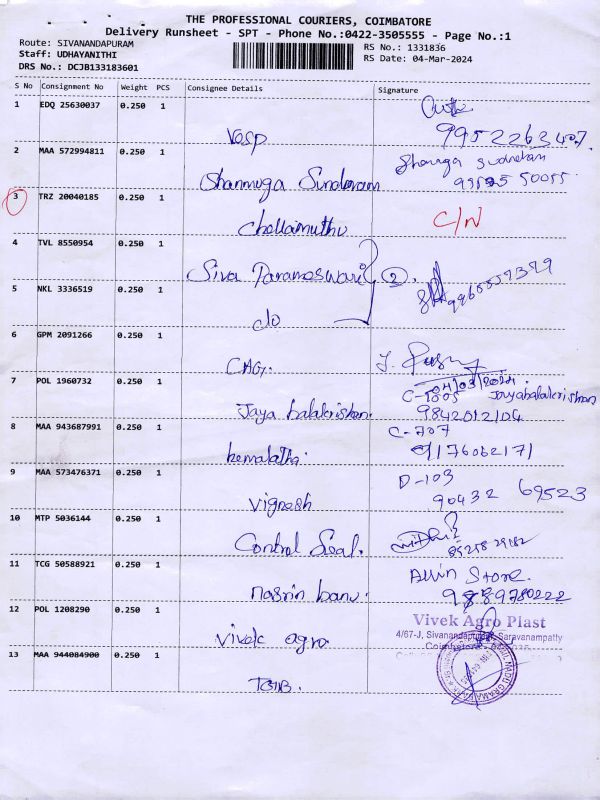 THE PROFESSIONAL COURIERS, COIMBATORE
Delivery Runsheet - SPT - Phone No.:0422-3505555 - Page No.:1
Route: SIVANANDAPURAM
RS No.: 1331836
Staff: UDHAYANITHI
RS Date: 04-Mar-2024
DRS No.: DCJB133183601
S No Consignment No Weight PCS Consignee Details Signature
1 EDQ 25630037 0.250 1
Vosp
2 MAA 572994811 0.250 1
Shanmuga Sundaram
3 TRZ 20040185 0.250 1
Chellaimuthu C/N
4 TVL 8550954 0.250 1
Siva Parameswari 2
5 NKL 3336519 0.250 1
do
6 GPM 2091266 0.250 1
CAG.
04/03/2024
7 POL 1960732 0.250 1
C-1805 Jayabalakrishnan
Jaya balakrishnan. 9842012104
8 MAA 943687991 0.250 1 C-707
hemalatha. 9176062171
9 MAA 573476371 0.250 1 D-103
Vignesh 90432 69523
10 MTP 5036144 0.250 1
Control Seal.
11 TCG 50588921 0.250 1 Store.
nasrin banu.
12 POL 1208290 0.250 1 Vivek Agro Plast
4/67-J, Sivanandapuram, Saravanampatty
vivek agro
13 MAA 944084900 0.250 1
TGB.